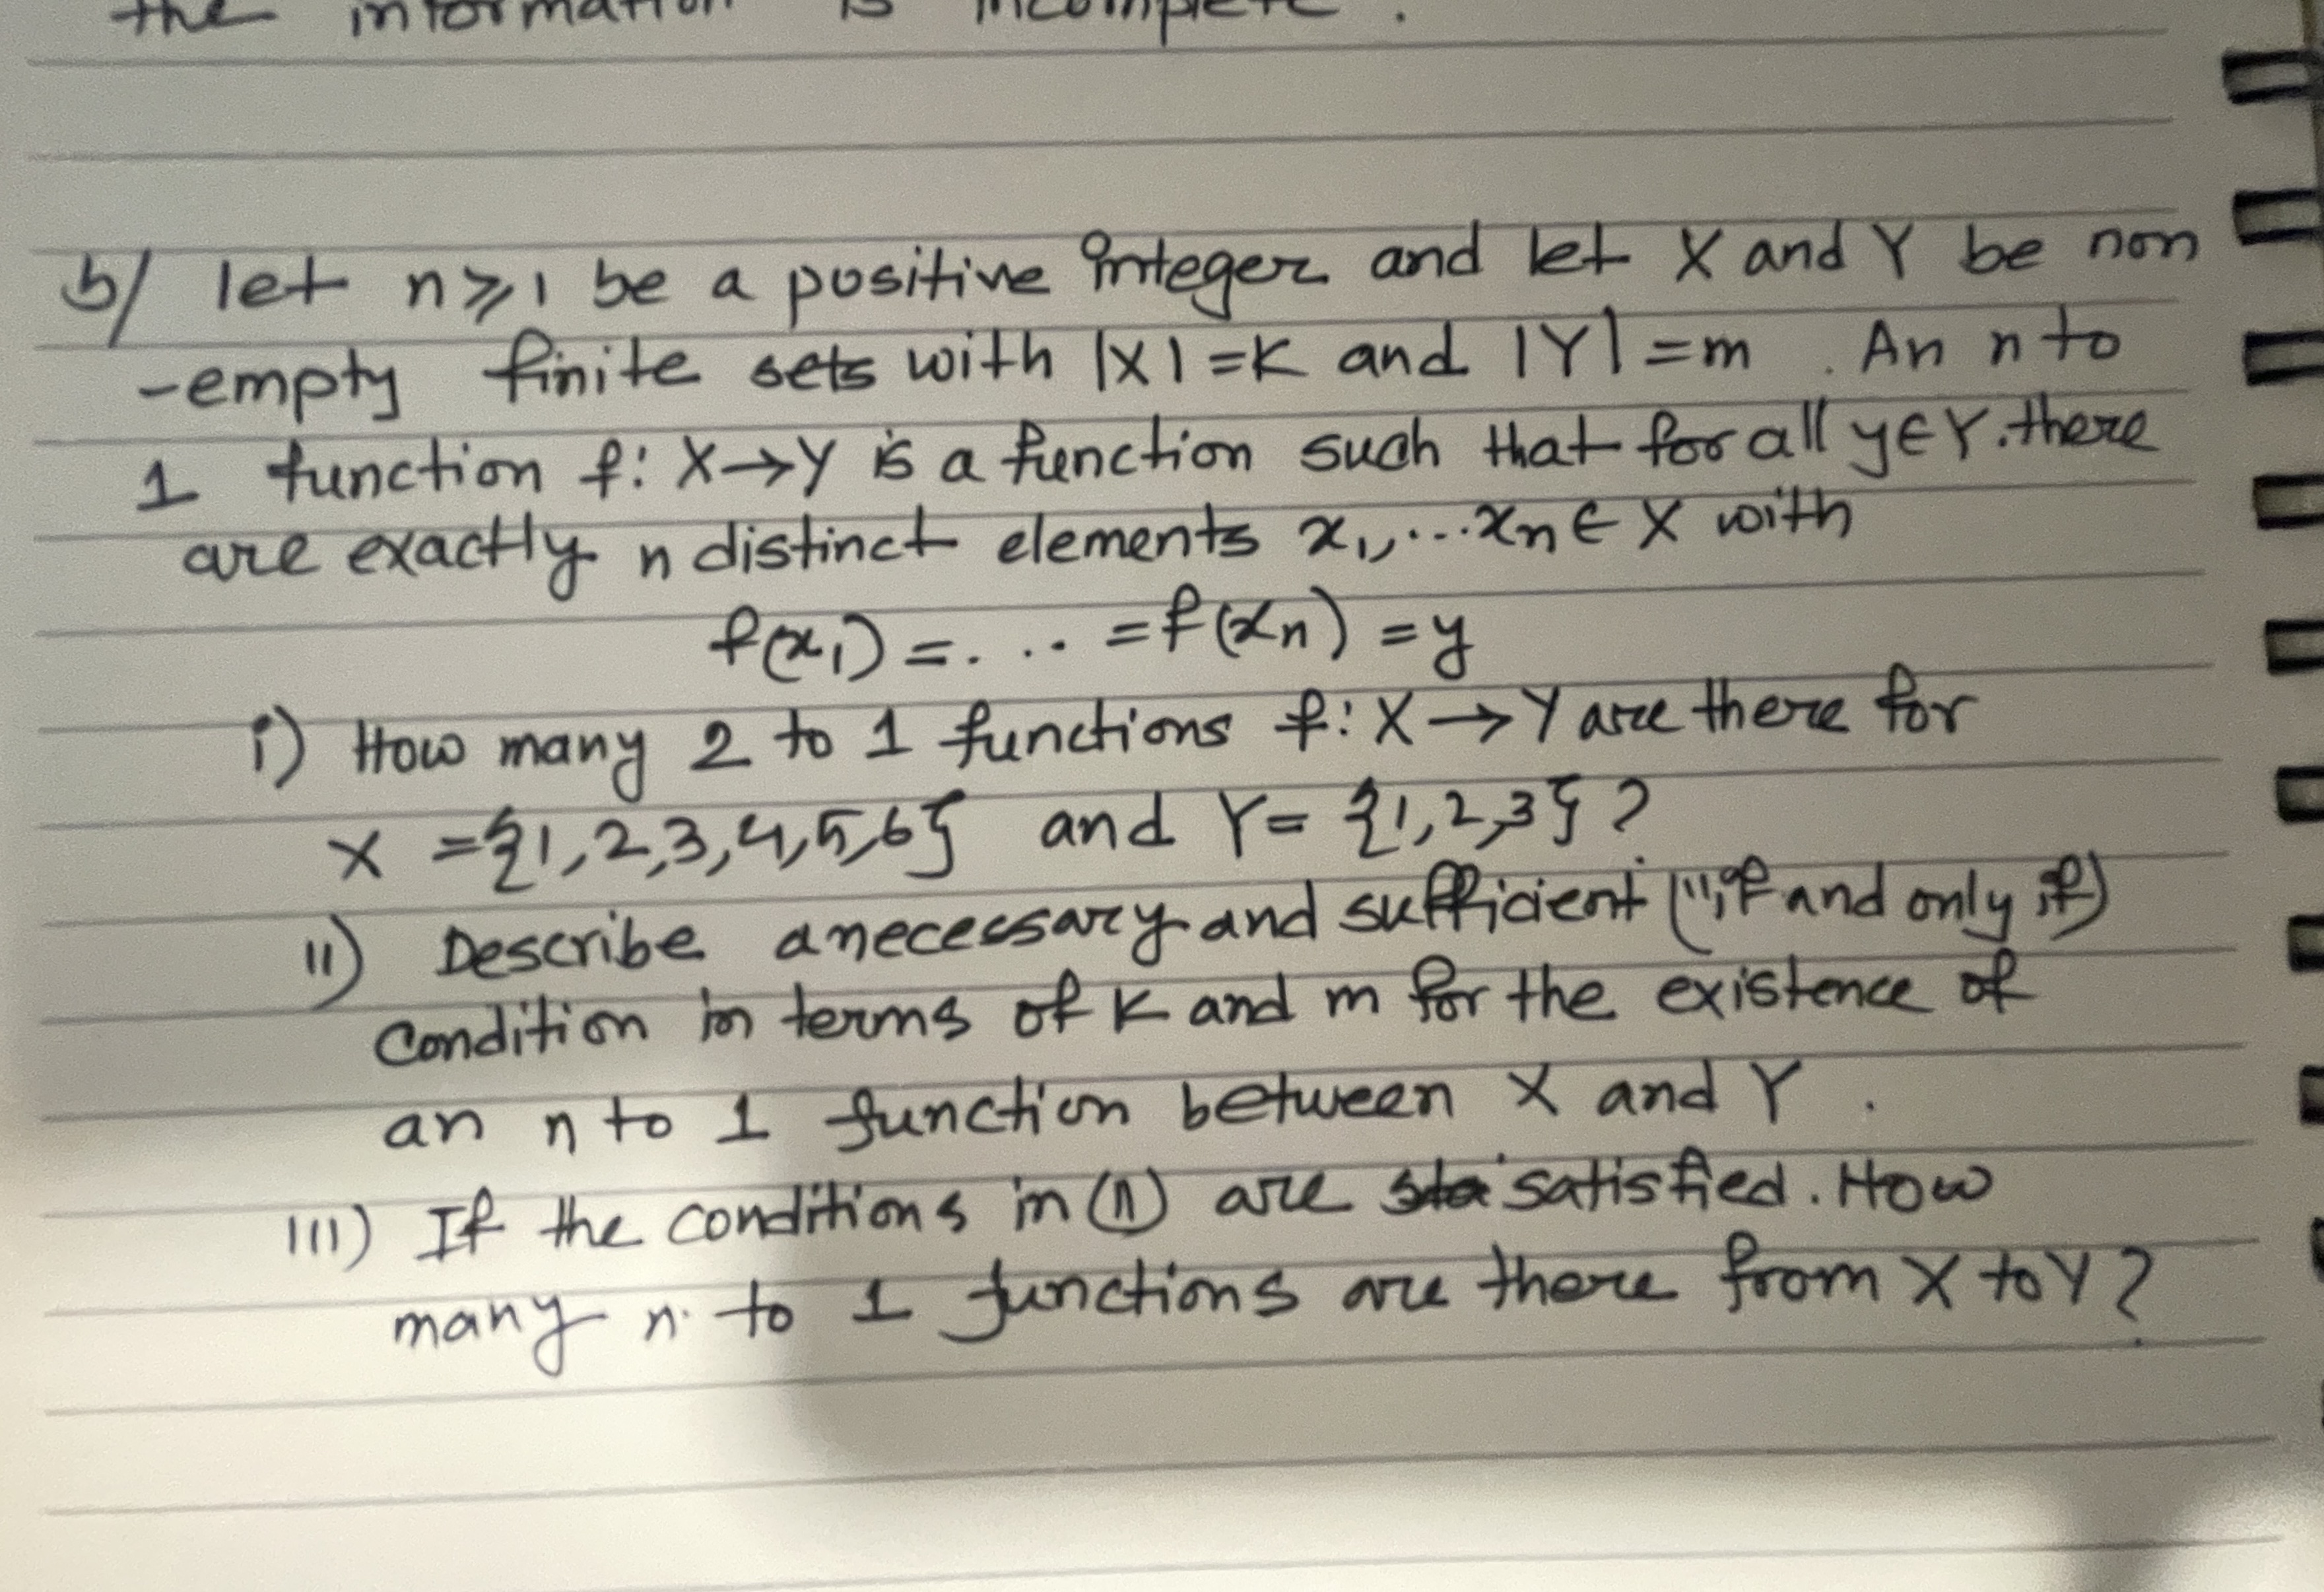 the information is incomplete.
b/ let n⩾1 be a positive integer and let X and Y be non
-empty finite sets with |X| = K and |Y| = m . An n to
1 function f: X→Y is a function such that for all y∈Y. there
are exactly n distinct elements x₁,,...xn ∈ X with
f(x₁) = . . . = f(xn) = y
i) How many 2 to 1 functions f: X→Y are there for
X = {1,2,3,4,5,6} and Y= {1,2,3} ?
ii) Describe a necessary and sufficient ("if and only if)
Condition in terms of K and m for the existence of
an n to 1 function between X and Y .
iii) If the conditions in (ii) are satisfied. How
many n. to 1 functions are there from X to Y?